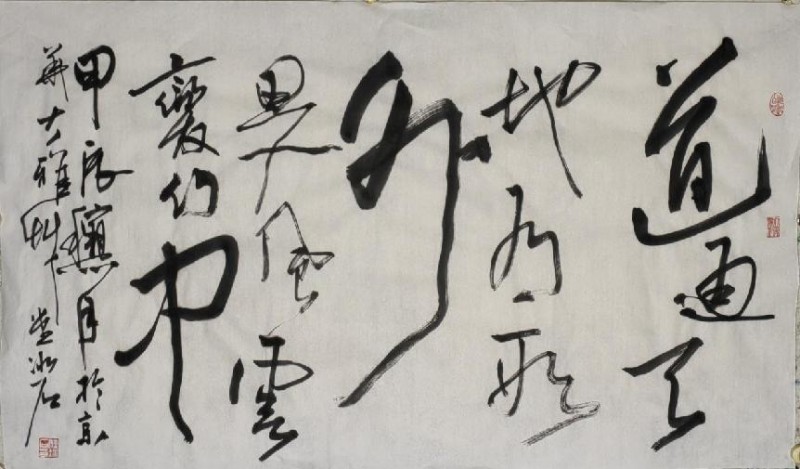 道通天
地有形
外
思入風雲
變幻中
甲辰龝月於京
華大雅艸堂冰石